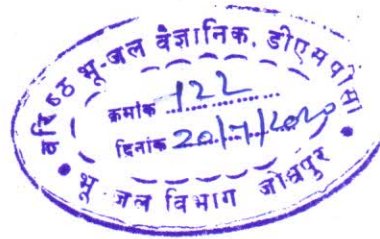 वरिष्ठ भू-जल वैज्ञानिक, डीएमपीसी
क्रमांक 122
दिनांक 20/7/2020
भू जल विभाग जोधपुर